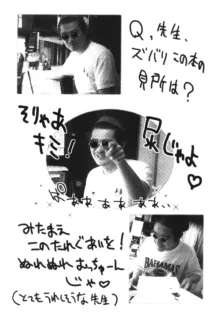 Q、先生、
ズバリこの本の
見所は？
そりゃあ
キミ！
尻じゃよ♡
みたまえ
このたれぐあいを！
ぬれぬれむっちゅーん
じゃ♡
(とてもうれしそうな先生)
BAHAMAS